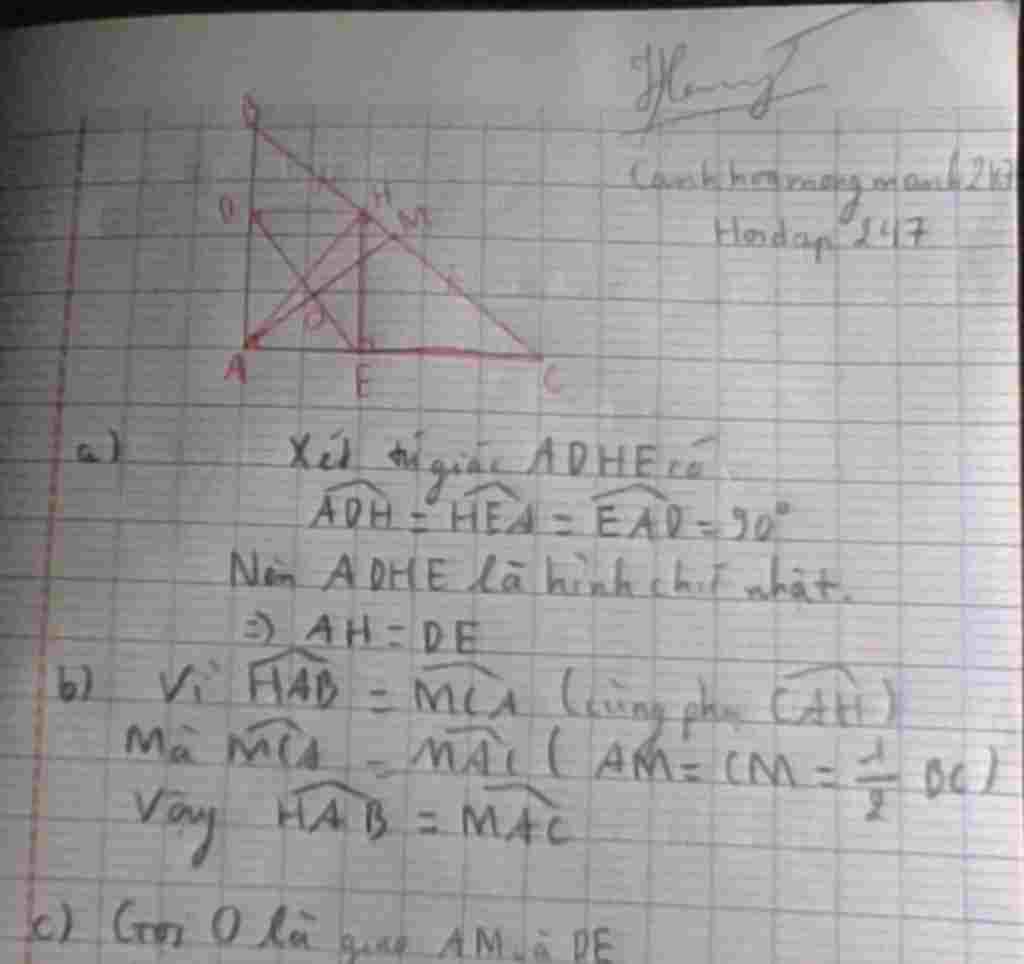 Canhhoamongmanh2k7
Hoidap247
B
D
H
M
O
A
E
C
a) Xét tứ giác ADHE có
ADH = HEA = EAD = 90°
Nên ADHE là hình chữ nhật.
=) AH = DE
b) Vì HAB = MCA (cùng phụ CAH)
Mà MCA = MAC ( AM = CM = 1/2 BC)
Vậy HAB = MAC
c) Gọi O là giao AM và DE